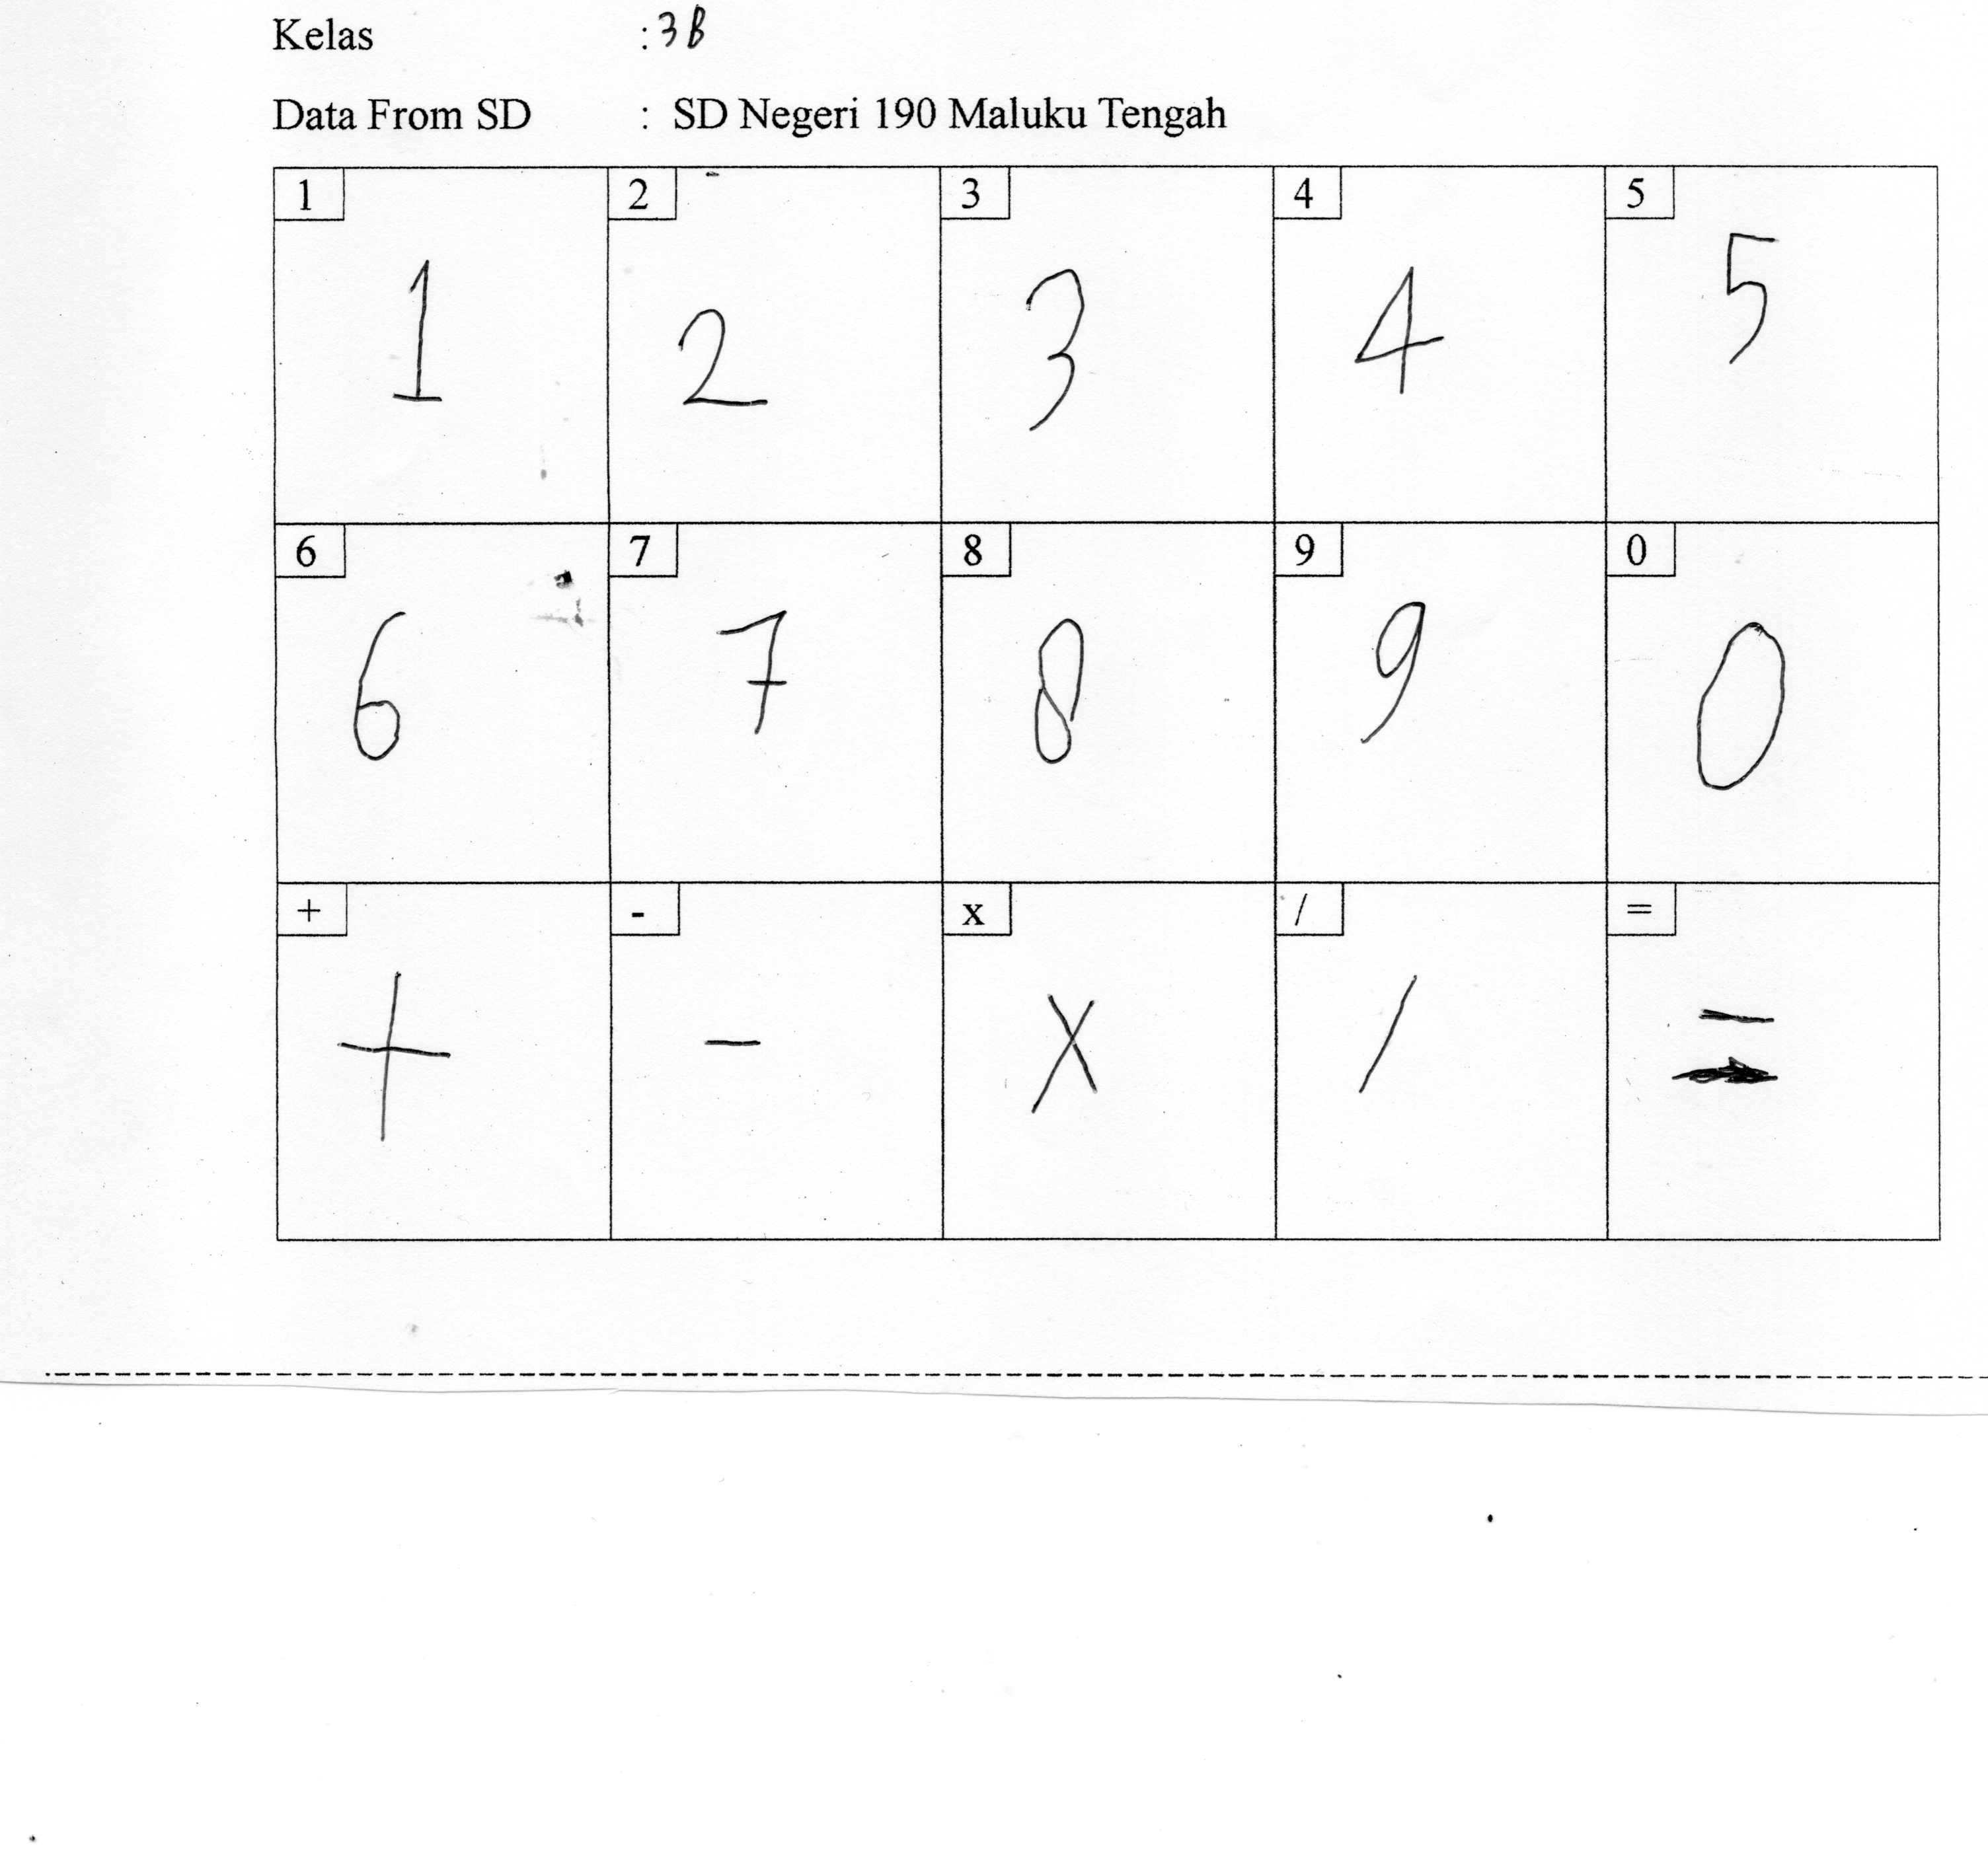 Kelas : 3B
Data From SD : SD Negeri 190 Maluku Tengah
1 2 3 4 5
1 2 3 4 5
6 7 8 9 0
6 7 8 9 0
+ - x / =
+ - x / =